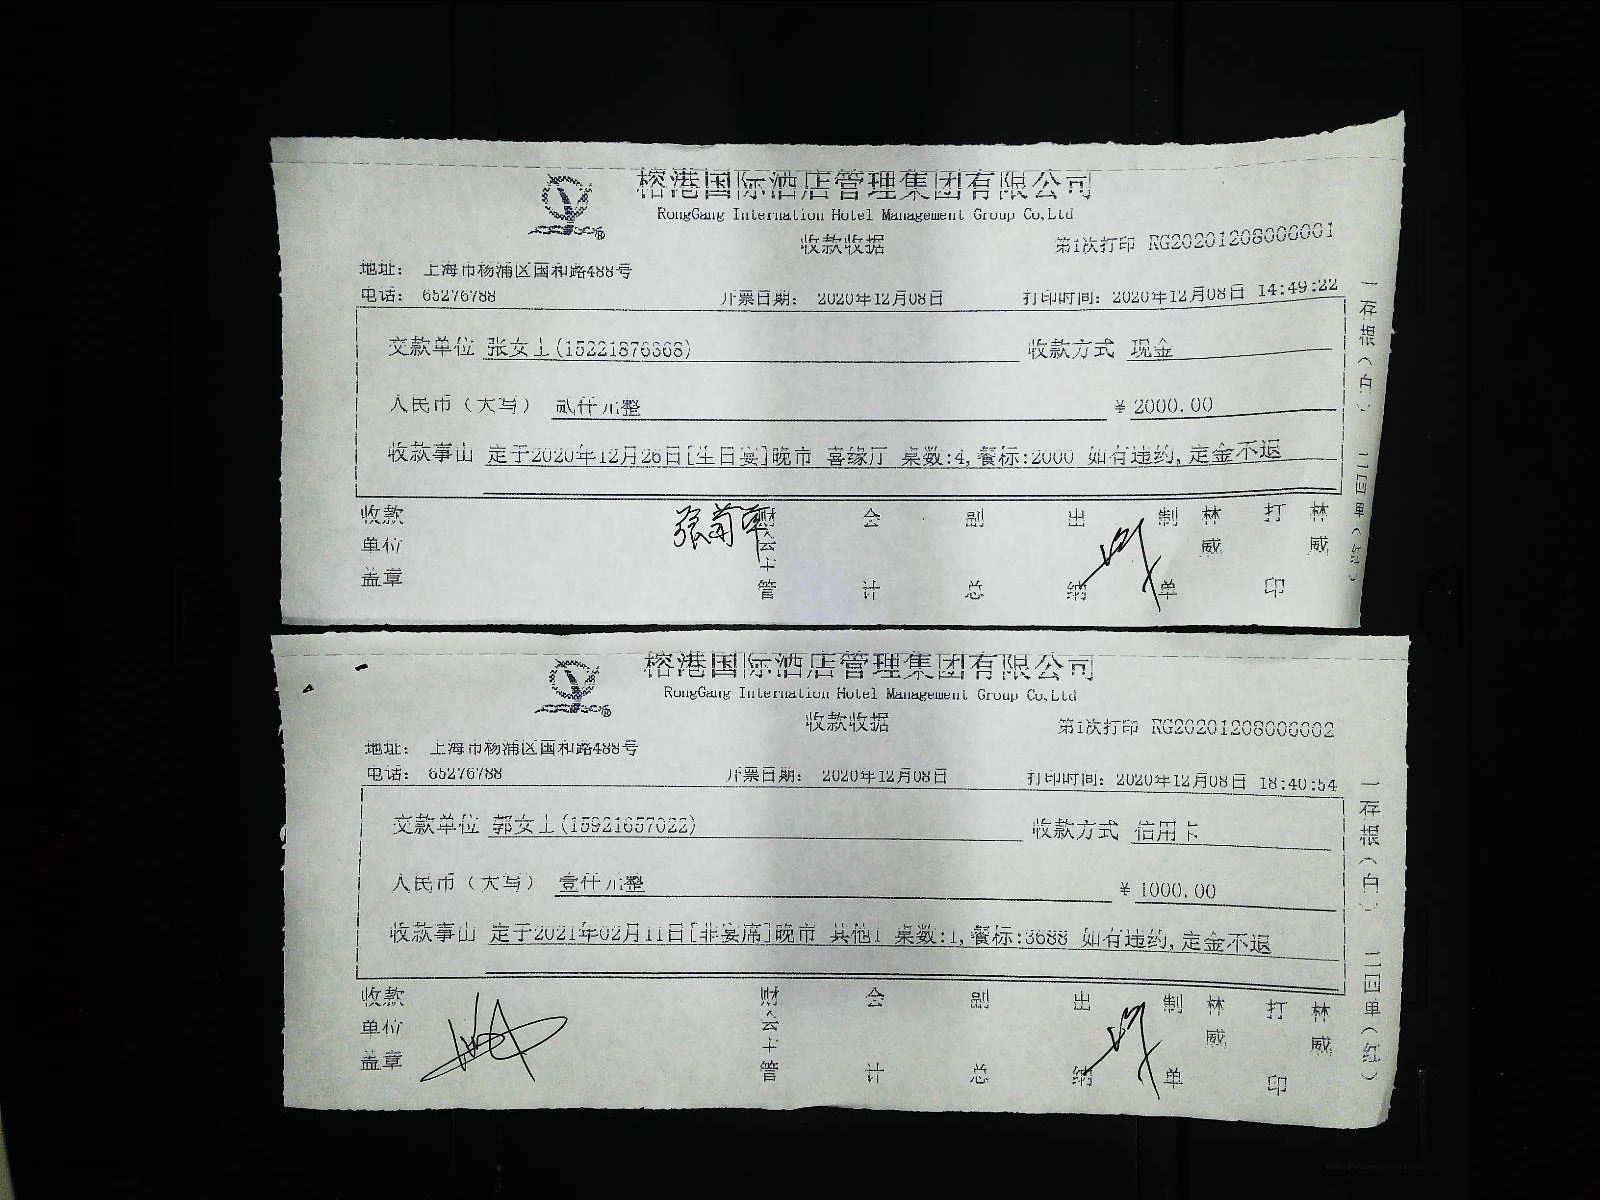 榕港国际酒店管理集团有限公司
RongGang Internation Hotel Management Group Co,Ltd
收款收据
第1次打印 RG20201208000001
地址： 上海市杨浦区国和路488号
电话： 65276788 开票日期： 2020年12月08日 打印时间：2020年12月08日 14:49:22
交款单位 张女士(15221876668) 收款方式 现金
人民币（大写） 贰仟元整 ¥ 2000.00
收款事由 定于2020年12月26日[生日宴]晚市 喜缘厅 桌数:4,餐标:2000 如有违约,定金不退
收款单位盖章 财会主管 会计 副总 出纳 制单 林威 打印 林威
一存根（白） 二回单（红）
榕港国际酒店管理集团有限公司
RongGang Internation Hotel Management Group Co,Ltd
收款收据
第1次打印 RG20201208000002
地址： 上海市杨浦区国和路488号
电话： 65276788 开票日期： 2020年12月08日 打印时间：2020年12月08日 18:40:54
交款单位 郭女士(15921657022) 收款方式 信用卡
人民币（大写） 壹仟元整 ¥ 1000.00
收款事由 定于2021年02月11日[非宴席]晚市 其他1 桌数:1,餐标:3688 如有违约,定金不退
收款单位盖章 财会主管 会计 副总 出纳 制单 林威 打印 林威
一存根（白） 二回单（红）